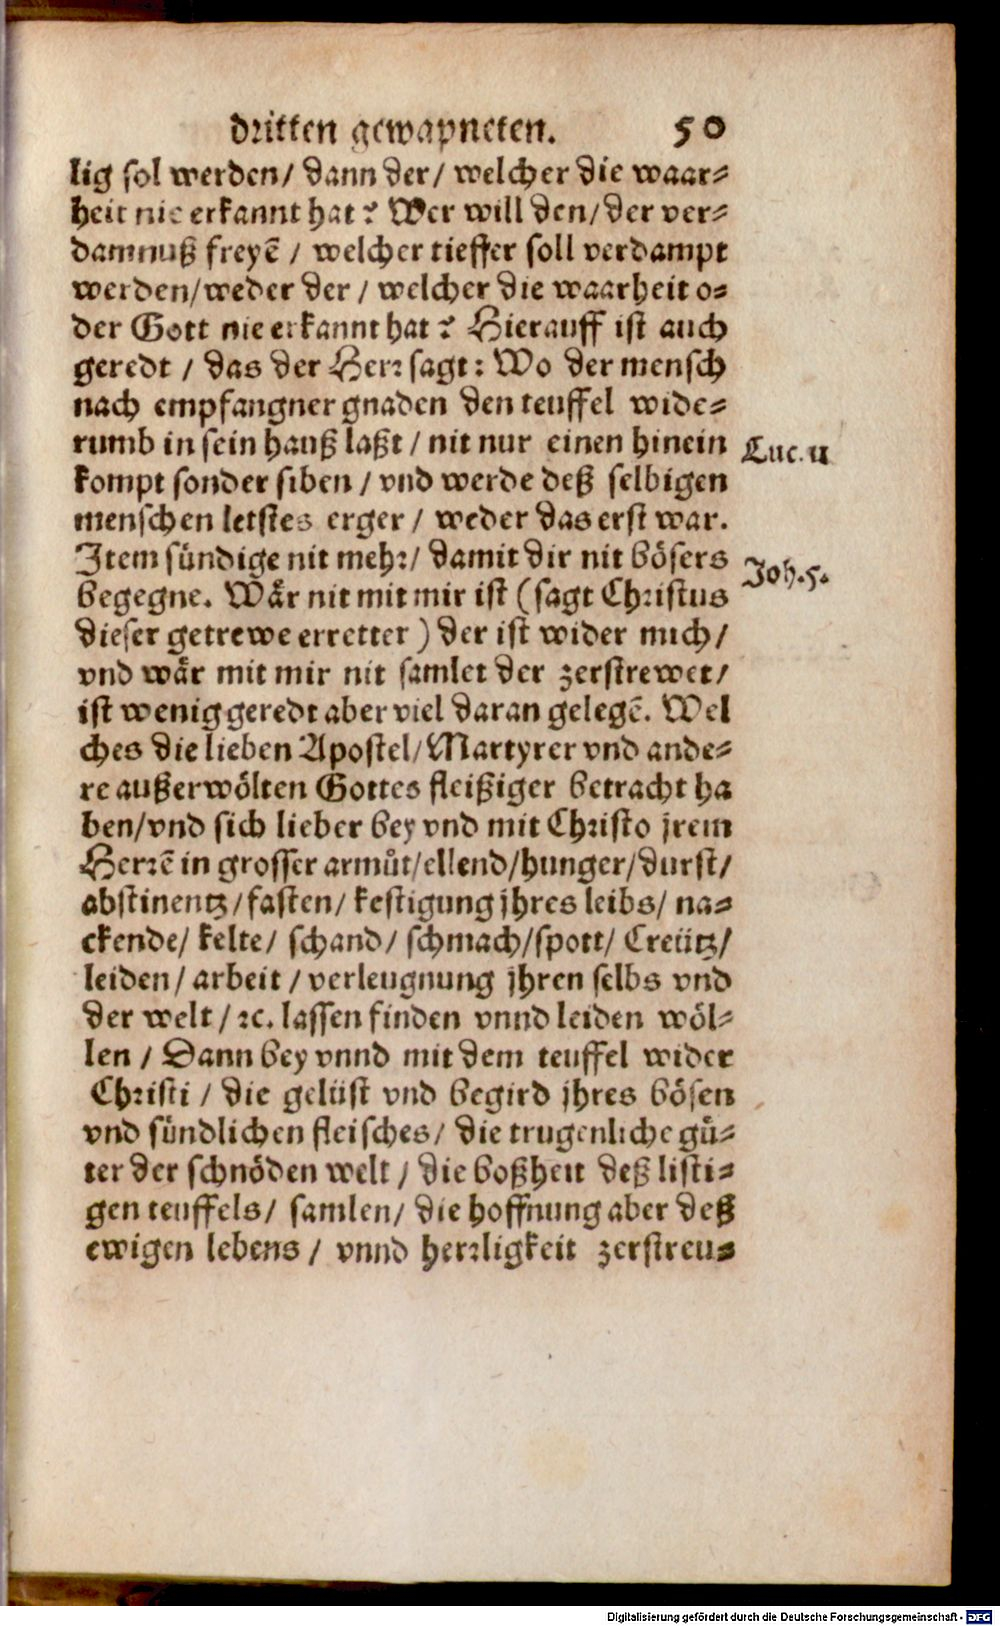 dritten gewapneten. 50
lig sol werden/ dann der/ welcher die waar-
heit nie erkannt hat? Wer will den/ der ver-
damnuß freyẽ / welcher tieffer soll verdampt
werden/weder der / welcher die waarheit o-
der Gott nie erkannt hat? Hierauff ist auch
geredt / das der Herr sagt: Wo der mensch
nach empfangner gnaden den teuffel wide-
rumb in sein hauß laßt / nit nur einen hinein
kompt sonder siben / vnd werde deß selbigen
menschen letstes erger / weder das erst war.
Luc. 11
Item sündige nit mehr/ damit dir nit bösers
begegne. Wår nit mit mir ist (sagt Christus
Joh. 5.
dieser getrewe erretter) der ist wider mich/
vnd wår mit mir nit samlet der zerstrewet/
ist wenig geredt aber viel daran gelegẽ. Wel
ches die lieben Apostel/Martyrer vnd ande-
re außerwölten Gottes fleißiger betracht ha
ben/vnd sich lieber bey vnd mit Christo jrem
Herrẽ in grosser armůt/ellend/hunger/durst/
abstinentz/fasten/ kestigung jhres leibs/ na-
ckende/ kelte/ schand/ schmach/spott/ Creütz/
leiden/ arbeit / verleugnung jhren selbs vnd
der welt / ꝛc. lassen finden vnnd leiden wöl-
len / Dann bey vnnd mit dem teuffel wider
Christi / die gelüst vnd begird jhres bösen
vnd sündlichen fleisches/ die trugenliche gü-
ter der schnöden welt / die boßheit deß listi-
gen teuffels/ samlen/ die hoffnung aber deß
ewigen lebens / vnnd herrligkeit zerstreu-
Digitalisierung gefördert durch die Deutsche Forschungsgemeinschaft - DFG